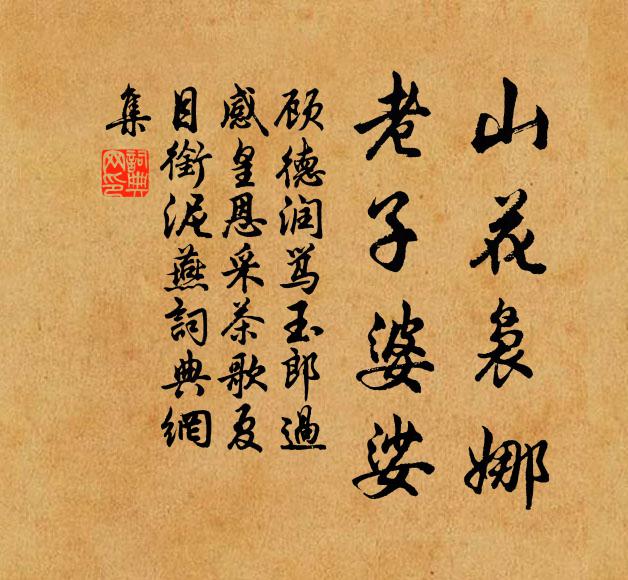 山花袅娜
老子婆娑
顾德润骂玉郎過
感皇恩采茶歌夏
目銜泥燕詞典網
集
詞典
网印